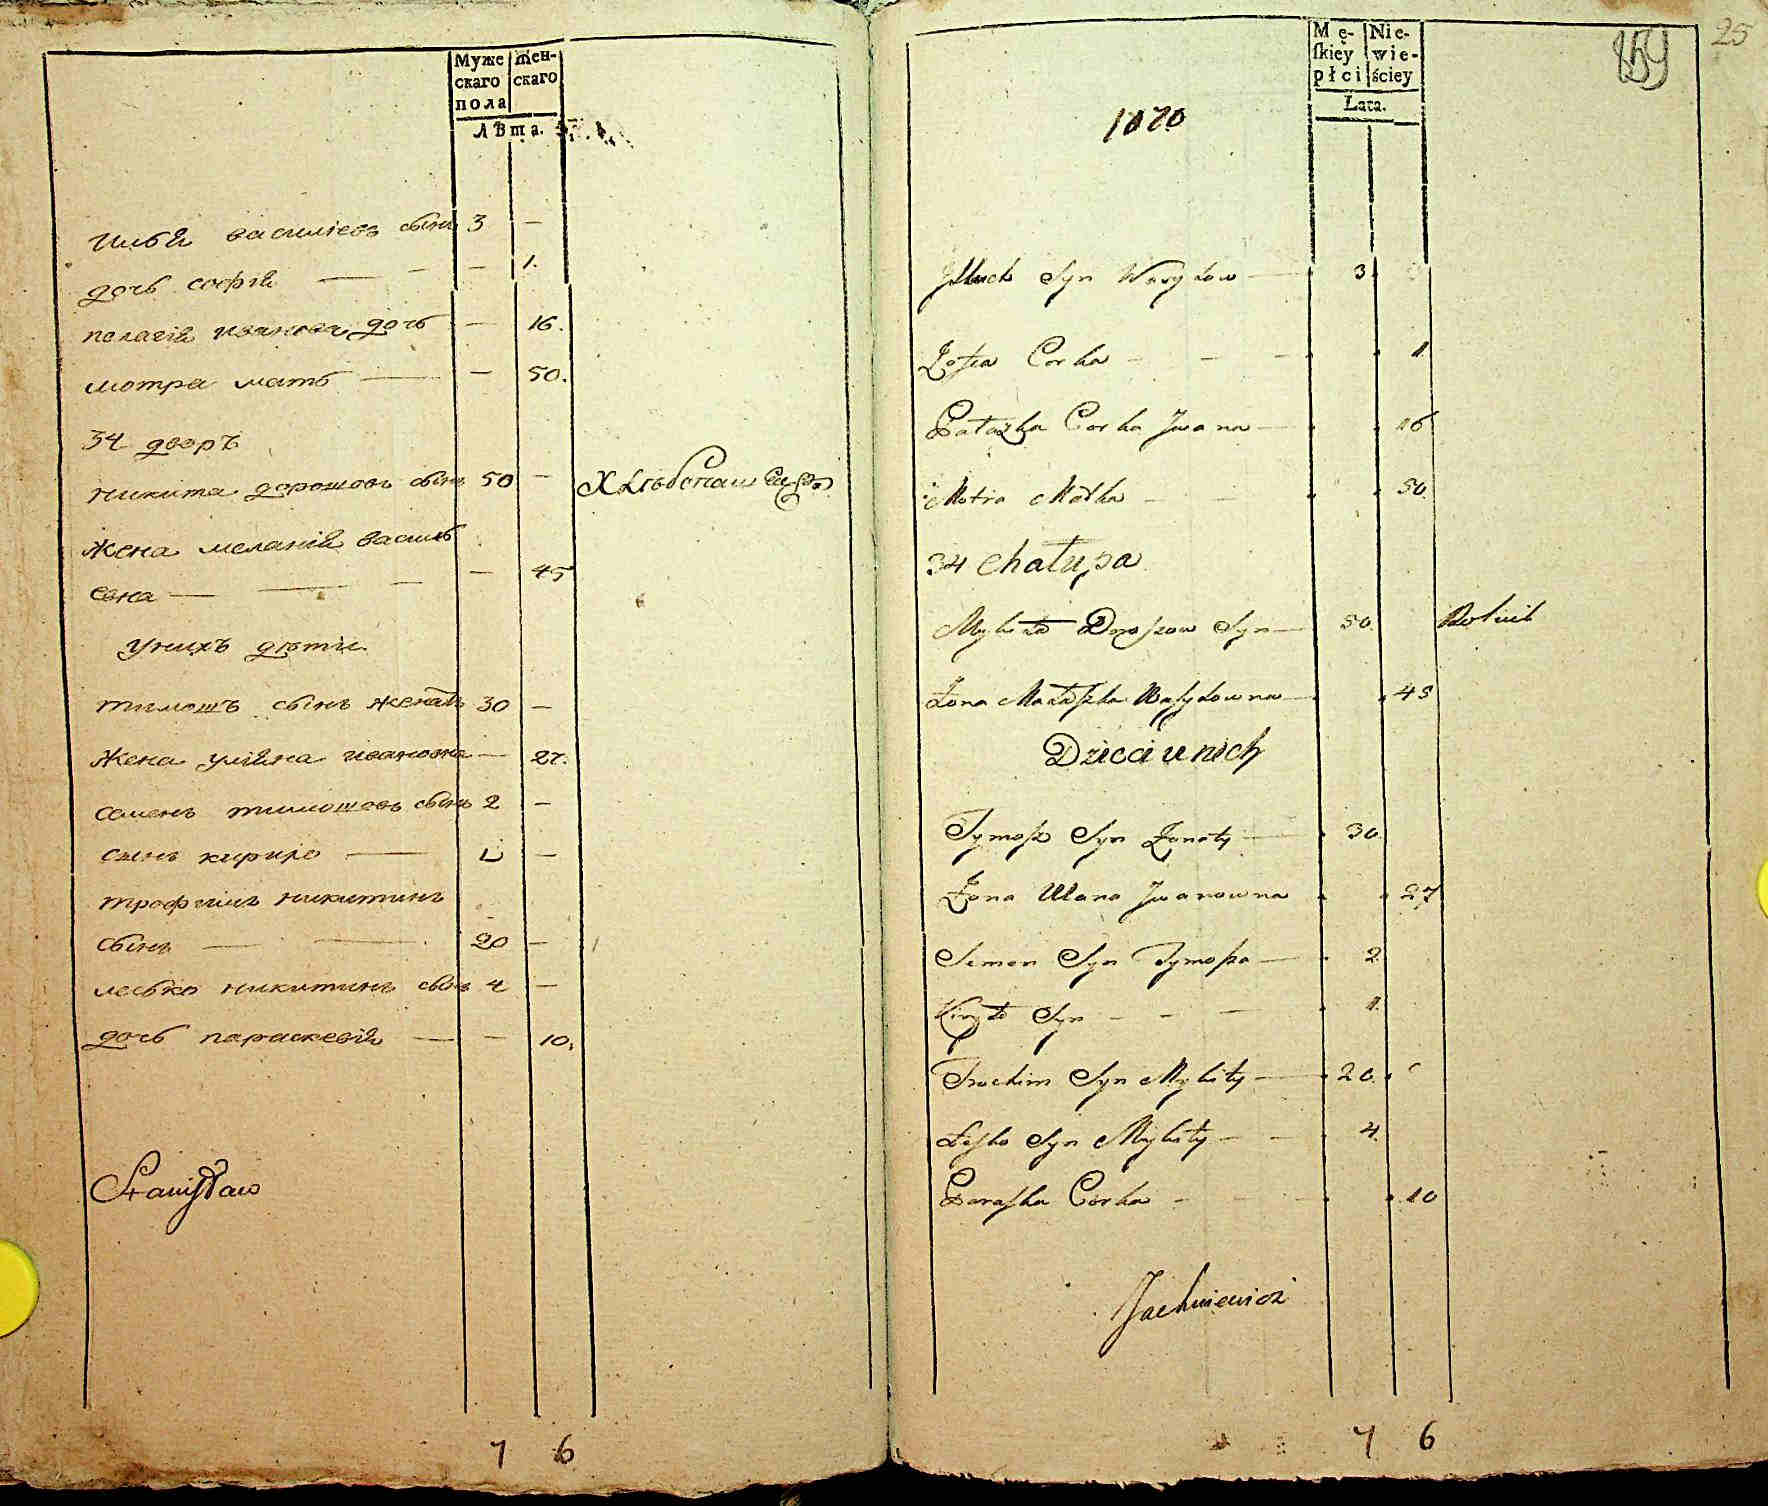 Муже
скаго
пола
Жен-
скаго
Лѣта.
илья василіевъ сынъ 3 —
дочь софія — — — 1.
пелагія иванова дочь — 16.
мотра мать — — 50.
34 дворъ
никита дорошовъ сынъ 50 — Хлебопашецъ
жена меланія василь
евна — — — — 45
у нихъ дѣти
тимошъ сынъ женатъ 30 —
жена уліяна ивановна — 27.
семенъ тимошовъ сынъ 2 —
сынъ кирило — 1 —
трофимъ никитинъ
сынъ — — 20 —
лесько никитинъ сынъ 4 —
дочь параскевія — — 10.
Stanisław
7 6
Mę-
skiey
płci
Nie-
wie-
ściey
Lata.
159
25
1070
Illuch Syn Wasylow — 3
Zofia Corka — — — 1
Pałazka Corka Jwana — 16
Motra Matka — — 50
34 Chałupa
Mykita Doroszow Syn — 50 Rolnik
Żona Małaszka Wasylowna — 45
Dzieci u nich
Tymosz Syn Żonaty — 30
Żona Ulana Jwanowna 27
Semen Syn Tymosza — 2
Kiryło Syn — — — 1.
Trochim Syn Mykity — 20.
Leśko Syn Mykity — — 4.
Paraska Corka — — — 10
Jachniewicz
7 6